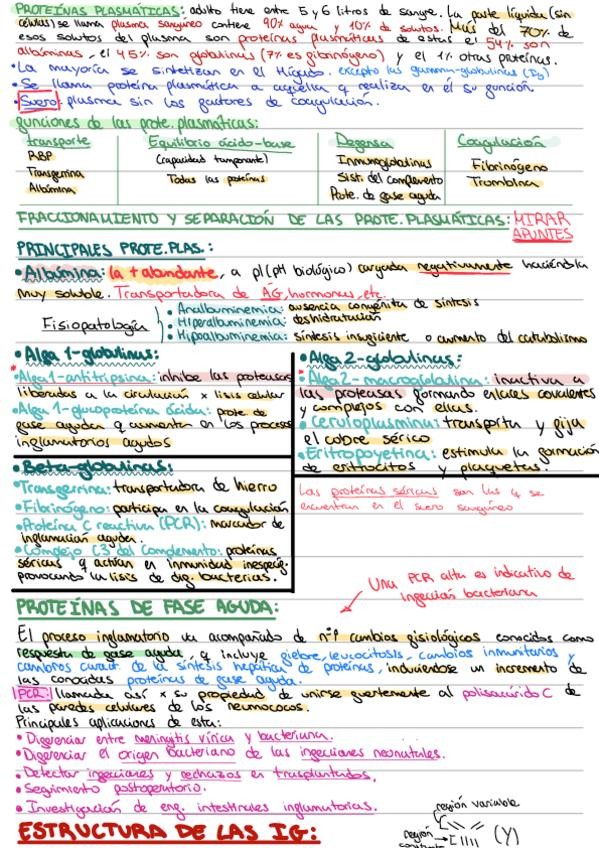 PROTEÍNAS PLASMÁTICAS: adulto tiene entre 5 y 6 litros de sangre. La parte líquida (sin
células) se llama plasma sanguíneo contiene 90% agua y 10% de solutos. Más del 70% de
esos solutos del plasma son proteínas plasmáticas de estas el 54% son
albúminas, el 45% son globulinas (7% es fibrinógeno) y el 1% otras proteínas.
• La mayoría se sintetizan en el Hígado. excepto las gamma-globulinas (Ig)
• Se llama proteína plasmática a aquella q realiza en él su función.
• Suero: plasma sin los factores de coagulación.
funciones de las prote. plasmáticas:
transporte Equilibrio ácido-base Defensa Coagulación
RBP (capacidad tamponante) Inmunoglobulinas Fibrinógeno
Transferrina Todas las proteínas Sist. del complemento Trombina
Albúmina Prote. de fase aguda
FRACCIONAMIENTO Y SEPARACIÓN DE LAS PROTE. PLASMÁTICAS: MIRAR
APUNTES
PRINCIPALES PROTE. PLAS.:
• Albúmina: la + abundante, a pI (pH biológico) cargada negativamente haciéndola
muy soluble. Transportadora de AG, hormonas, etc.
Fisiopatología
• Analbuminemia: ausencia congénita de síntesis
• Hiperalbuminemia: deshidratación
• Hipoalbuminemia: síntesis insuficiente o aumento del catabolismo
• Alfa 1-globulinas:
* Alfa 1-antitripsina: inhibe las proteasas
liberadas a la circulación x lisis celular
• Alfa 1-glucoproteína ácida: prote. de
fase aguda q aumenta en los procesos
inflamatorios agudos
• Alfa 2-globulinas:
* Alfa 2-macroglobulina: inactiva a
las proteasas formando enlaces covalentes
y complejos con ellas.
• Ceruloplasmina: transporta y fija
el cobre sérico
• Eritropoyetina: estimula la formación
de eritrocitos y plaquetas.
• Beta-globulinas:
• Transferrina: transportadora de hierro
• Fibrinógeno: participa en la coagulación
• Proteína C reactiva (PCR): marcador de
inflamación aguda.
• Complejo C3 del Complemento: proteínas
séricas q actúan en inmunidad inespecíf.
provocando la lisis de dif. bacterias.
Las proteínas séricas son las q se
encuentran en el suero sanguíneo
Una PCR alta es indicativo de
infección bacteriana
PROTEÍNAS DE FASE AGUDA:
El proceso inflamatorio va acompañado de nº cambios fisiológicos conocidos como
respuesta de fase aguda, q incluye fiebre, leucocitosis, cambios inmunitarios y
cambios cuant. de la síntesis hepática de proteínas, induciéndose un incremento de
las conocidas proteínas de fase aguda.
PCR: llamada así x su propiedad de unirse fuertemente al polisacárido C de
las paredes celulares de los neumococos.
Principales aplicaciones de esta:
• Diferenciar entre meningitis vírica y bacteriana.
• Diferenciar el origen bacteriano de las infecciones neonatales.
• Detectar infecciones y rechazos en trasplantados.
• Seguimiento postoperatorio.
• Investigación de enf. intestinales inflamatorias.
ESTRUCTURA DE LAS IG:
región variable
región
constante
(Y)